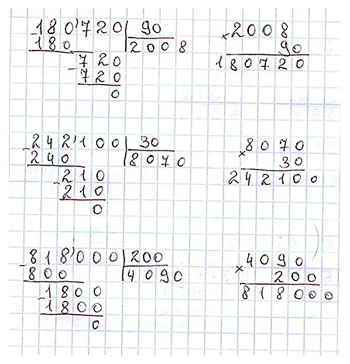 180'720 | 90
180 | 2008
720
720
0
2008
× 90
180720
242'100 | 30
240 | 8070
210
210
0
8070
× 30
242100
818'000 | 200
800 | 4090
1800
1800
0
4090
× 200
818000